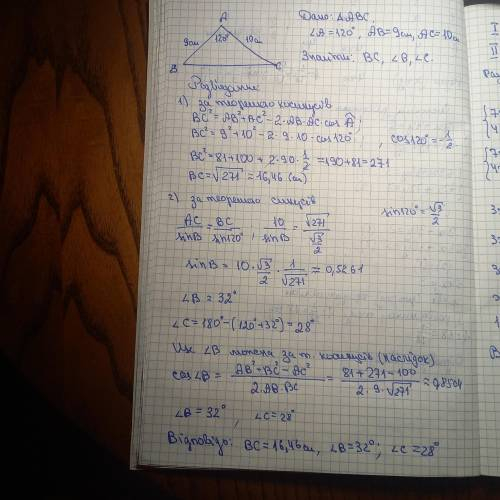 A
120°
9см
10см
B
C
Дано: △ABC,
∠A = 120°, AB = 9см, AC = 10см
Знайти: BC, ∠B, ∠C.
Розв'язання:
1) за теоремою косинусів
BC² = AB² + BC² - 2·AB·AC·cos A;
BC² = 9² + 10² - 2·9·10·cos 120°, cos 120° = -1/2
BC² = 81 + 100 + 2·90·1/2 = 190 + 81 = 271
BC = √271 ≈ 16,46 (см)
2) за теоремою синусів
AC/sinB = BC/sin120°, 10/sinB = √271/(√3/2) sin120° = √3/2
sinB = 10·√3/2 · 1/√271 ≈ 0,5261
∠B = 32°
∠C = 180° - (120° + 32°) = 28°
Ще ∠B можна за т. косинусів (наслідок)
cos∠B = (AB² + BC² - AC²)/(2·AB·BC) = (81 + 271 - 100)/(2·9·√271) ≈ 0,8504
∠B = 32°, ∠C = 28°
Відповідь: BC = 16,46см, ∠B = 32°; ∠C = 28°
I
II